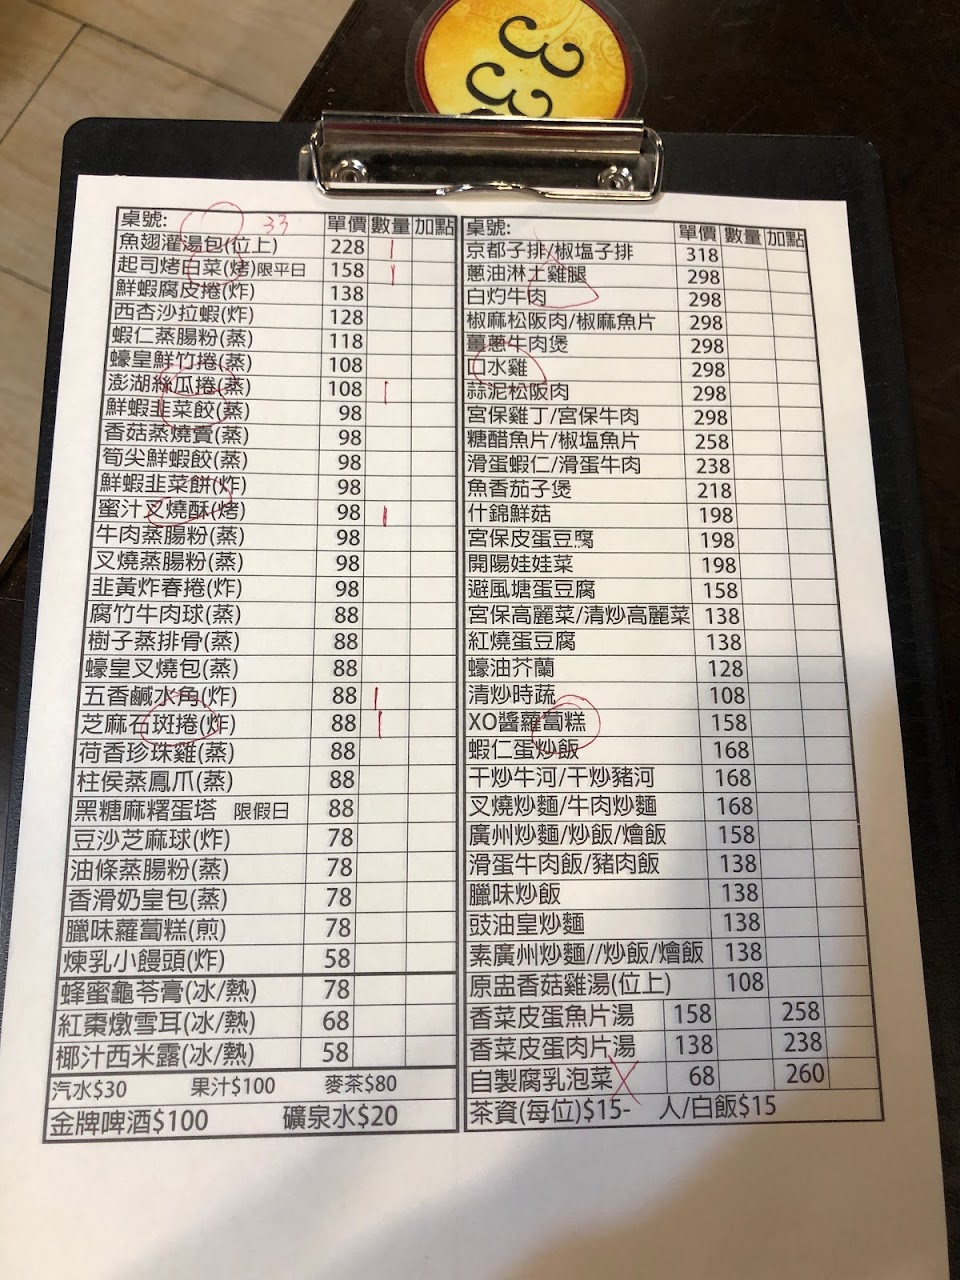 33
桌號: 33 單價 數量 加點
魚翅灌湯包(位上) 228 |
起司烤白菜(烤)限平日 158 |
鮮蝦腐皮捲(炸) 138
西杏沙拉蝦(炸) 128
蝦仁蒸腸粉(蒸) 118
蠔皇鮮竹捲(蒸) 108
澎湖絲瓜捲(蒸) 108 |
鮮蝦韭菜餃(蒸) 98
香菇蒸燒賣(蒸) 98
筍尖鮮蝦餃(蒸) 98
鮮蝦韭菜餅(炸) 98
蜜汁叉燒酥(烤) 98 |
牛肉蒸腸粉(蒸) 98
叉燒蒸腸粉(蒸) 98
韭黃炸春捲(炸) 98
腐竹牛肉球(蒸) 88
樹子蒸排骨(蒸) 88
蠔皇叉燒包(蒸) 88
五香鹹水角(炸) 88 |
芝麻石斑捲(炸) 88 |
荷香珍珠雞(蒸) 88
柱侯蒸鳳爪(蒸) 88
黑糖麻糬蛋塔 限假日 88
豆沙芝麻球(炸) 78
油條蒸腸粉(蒸) 78
香滑奶皇包(蒸) 78
臘味蘿蔔糕(煎) 78
煉乳小饅頭(炸) 58
蜂蜜龜苓膏(冰/熱) 78
紅棗燉雪耳(冰/熱) 68
椰汁西米露(冰/熱) 58
汽水$30 果汁$100 麥茶$80
金牌啤酒$100 礦泉水$20
桌號: 單價 數量 加點
京都子排/椒塩子排 318
蔥油淋土雞腿 298
白灼牛肉 298
椒麻松阪肉/椒麻魚片 298
薑蔥牛肉煲 298
口水雞 298
蒜泥松阪肉 298
宮保雞丁/宮保牛肉 298
糖醋魚片/椒塩魚片 258
滑蛋蝦仁/滑蛋牛肉 238
魚香茄子煲 218
什錦鮮菇 198
宮保皮蛋豆腐 198
開陽娃娃菜 198
避風塘蛋豆腐 158
宮保高麗菜/清炒高麗菜 138
紅燒蛋豆腐 138
蠔油芥蘭 128
清炒時蔬 108
XO醬蘿蔔糕 158
蝦仁蛋炒飯 168
干炒牛河/干炒豬河 168
叉燒炒麵/牛肉炒麵 168
廣州炒麵/炒飯/燴飯 158
滑蛋牛肉飯/豬肉飯 138
臘味炒飯 138
豉油皇炒麵 138
素廣州炒麵//炒飯/燴飯 138
原盅香菇雞湯(位上) 108
香菜皮蛋魚片湯 158 258
香菜皮蛋肉片湯 138 238
自製腐乳泡菜 X 68 260
茶資(每位)$15- 人/白飯$15